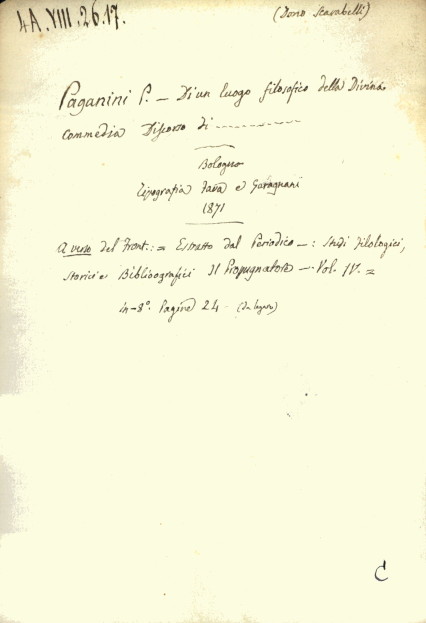 4A.VIII.26.17.
(Dono Scarabelli)
Paganini P. — Di un luogo filosofico della Divina
Commedia Discorso di ----------
Bologna
Tipografia Fava e Garagnani
1871
A verso del Front.: = Estratto dal Periodico —: Studi filologici,
Storici e Bibliografici Il Propugnatore — Vol. IV. =
in-8°. Pagine 24 - (da legare)
C